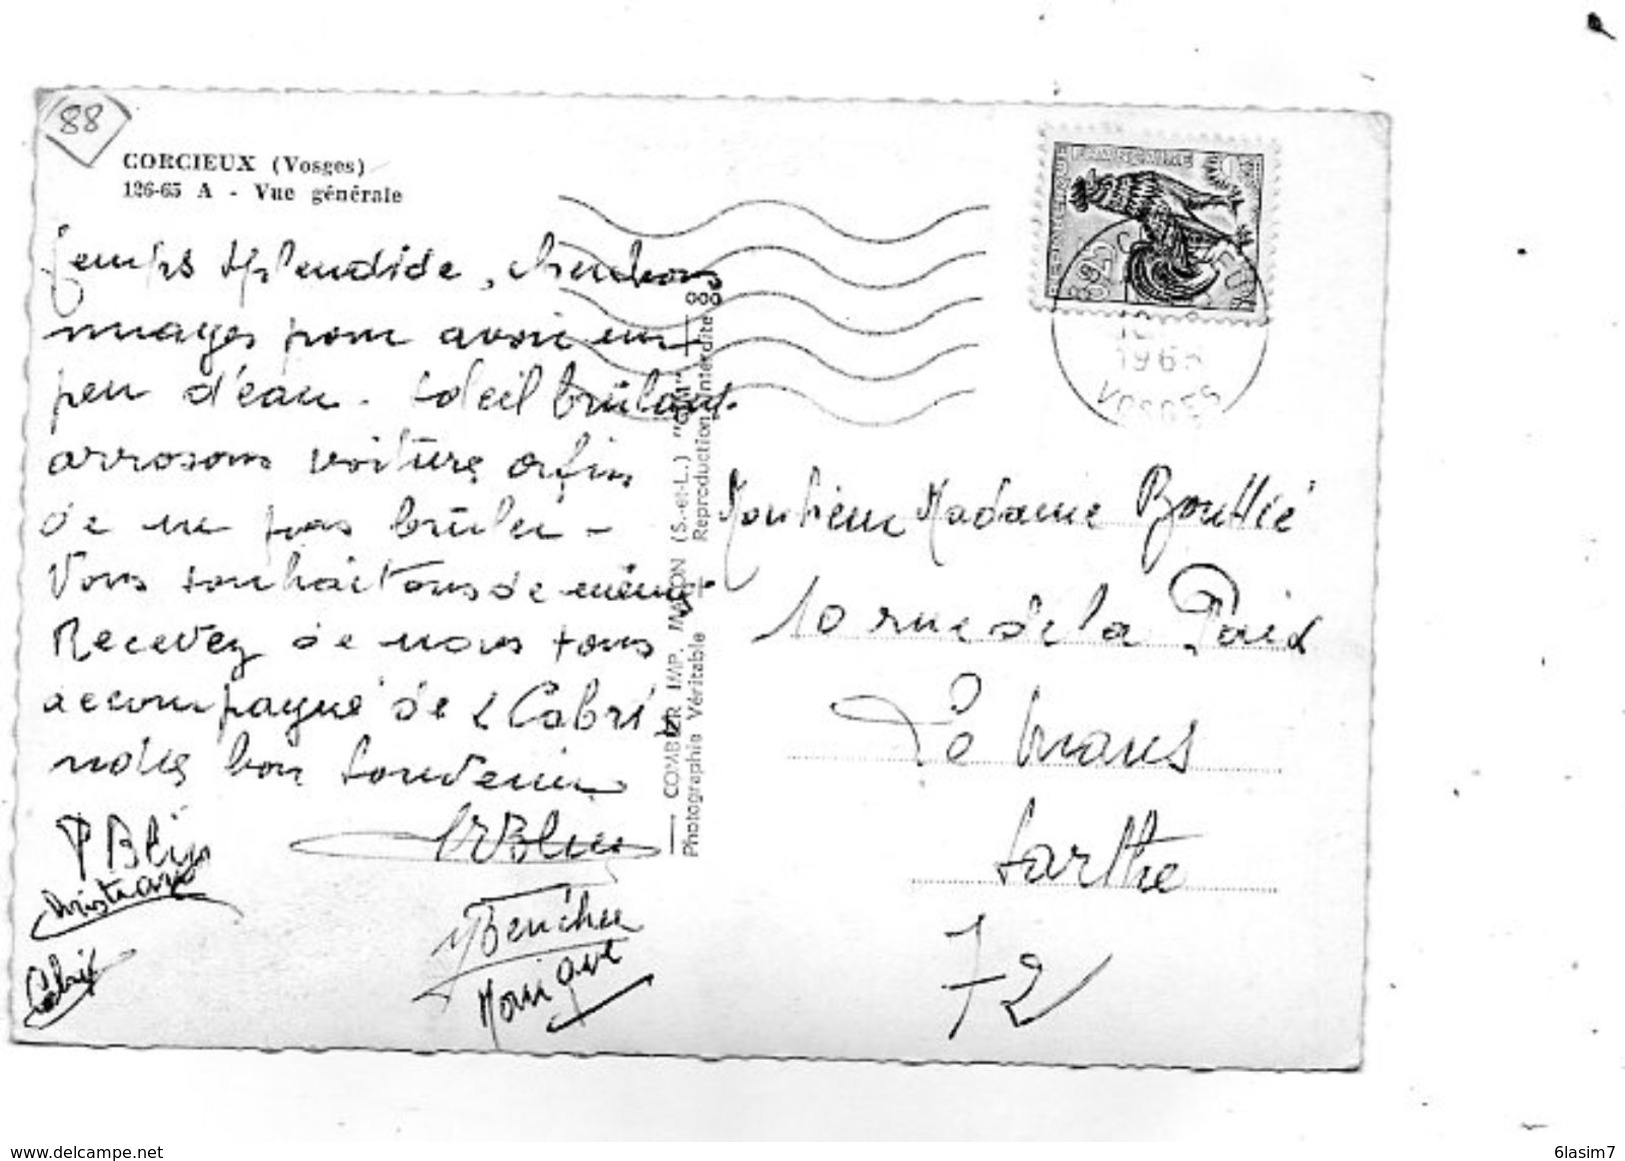 88
CORCIEUX (Vosges)
126-65 A - Vue générale
Temps splendide, cherchons
nuages pour avoir un
peu d'eau - soleil brûlant.
arrosons voiture afin
de ne pas brûler -
Vous souhaitons de même
Recevez de nous tous
accompagné de 2 Cabris
notre bon souvenir
P Blin
Christiane
Cabri
Monique
COMBIER IMP. MACON (S.-et-L.) "CIM"
Photographie Véritable Reproduction interdite
REPUBLIQUE FRANÇAISE
196
VOSGES
Monsieur Madame Bouttié
10 rue de la Paix
Le Mans
Sarthe
72
www.delcampe.net
6lasim7